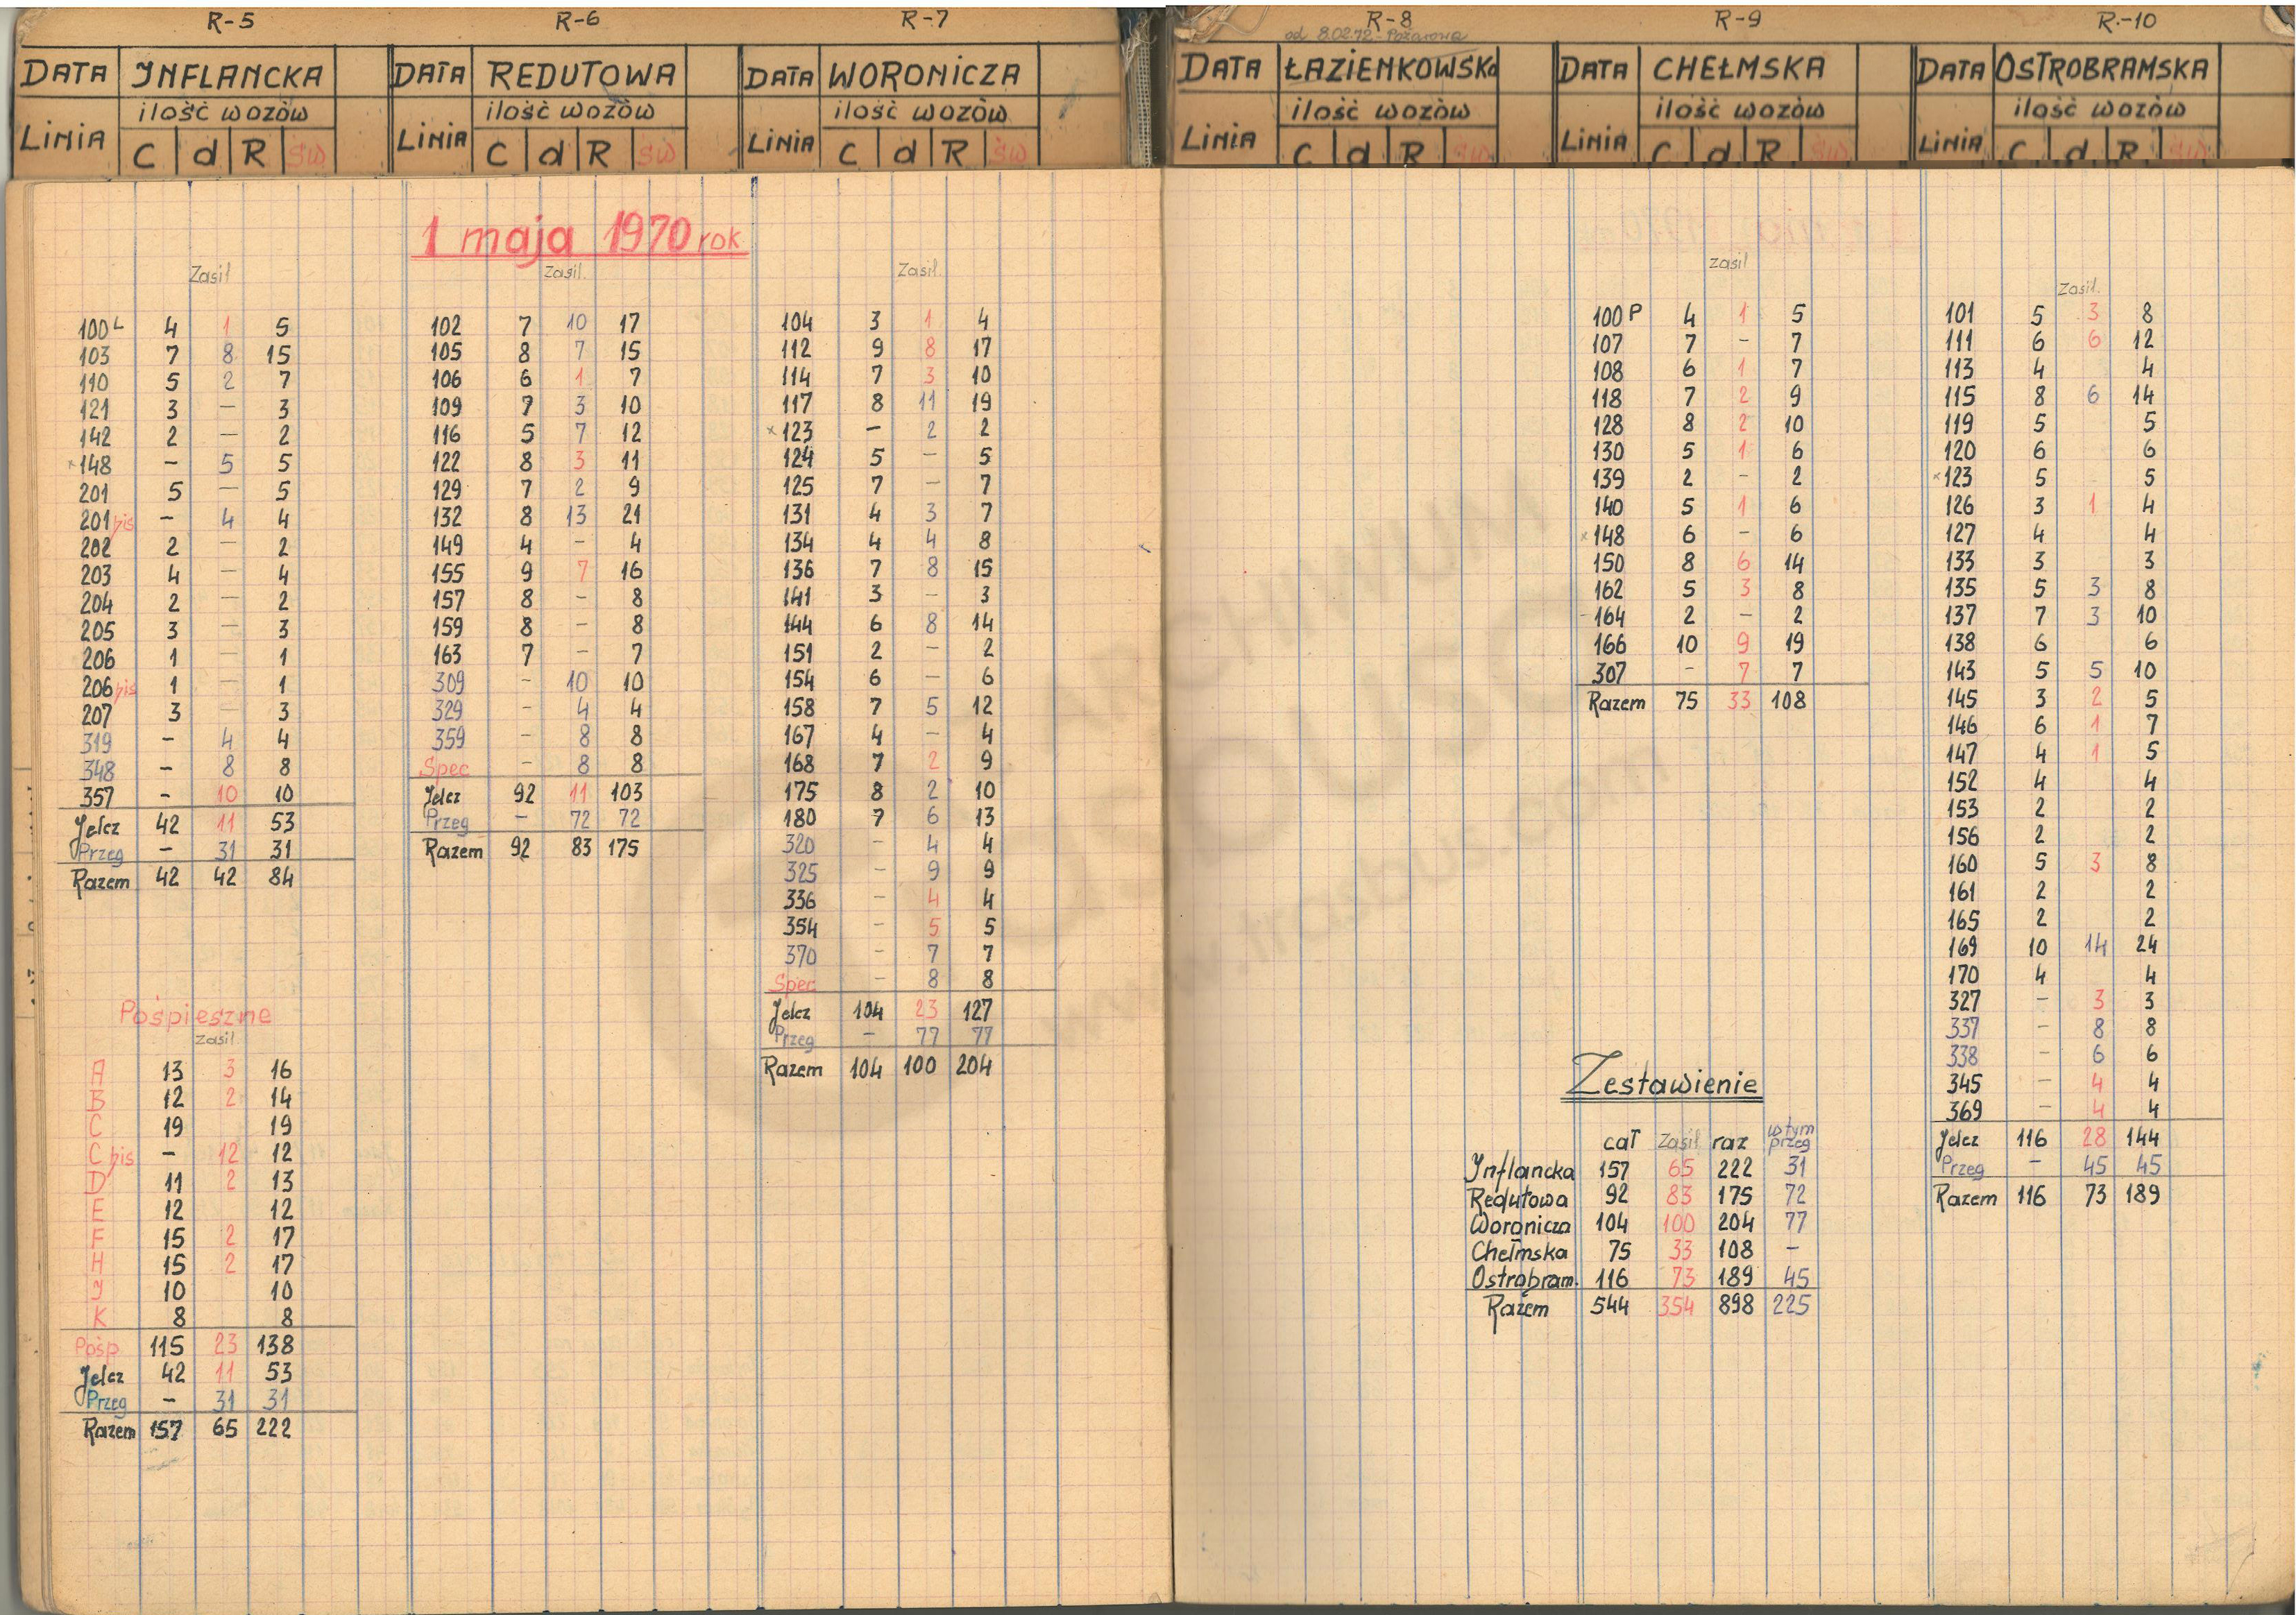 R-5
DATA INFLANCKA
ilość wozów
LINIA C d R św
R-6
DATA REDUTOWA
ilość wozów
LINIA C d R św
R-7
DATA WORONICZA
ilość wozów
LINIA C d R św
R-8
od 8.02.72 - Pożarowa
DATA ŁAZIENKOWSKA
ilość wozów
LINIA C d R św
R-9
DATA CHEŁMSKA
ilość wozów
LINIA C d R św
R-10
DATA OSTROBRAMSKA
ilość wozów
LINIA C d R św
1 maja 1970 rok
Zasil
100 L 4 1 5
103 7 8 15
110 5 2 7
121 3 – 3
142 2 – 2
x 148 – 5 5
201 5 – 5
201 bis – 4 4
202 2 – 2
203 4 – 4
204 2 – 2
205 3 – 3
206 1 – 1
206 bis 1 – 1
207 3 – 3
319 – 4 4
348 – 8 8
357 – 10 10
Jelcz 42 11 53
Przeg – 31 31
Razem 42 42 84
Pośpieszne
Zasil
A 13 3 16
B 12 2 14
C 19 19
C bis – 12 12
D 11 2 13
E 12 12
F 15 2 17
H 15 2 17
J 10 10
K 8 8
Pośp 115 23 138
Jelcz 42 11 53
Przeg – 31 31
Razem 157 65 222
Zasil.
102 7 10 17
105 8 7 15
106 6 1 7
109 7 3 10
116 5 7 12
122 8 3 11
129 7 2 9
132 8 13 21
149 4 – 4
155 9 7 16
157 8 – 8
159 8 – 8
163 7 – 7
309 – 10 10
329 – 4 4
359 – 8 8
Spec – 8 8
Jelcz 92 11 103
Przeg – 72 72
Razem 92 83 175
Zasil.
104 3 1 4
112 9 8 17
114 7 3 10
117 8 11 19
x 123 – 2 2
124 5 – 5
125 7 – 7
131 4 3 7
134 4 4 8
136 7 8 15
141 3 – 3
144 6 8 14
151 2 – 2
154 6 – 6
158 7 5 12
167 4 – 4
168 7 2 9
175 8 2 10
180 7 6 13
320 – 4 4
325 – 9 9
336 – 4 4
354 – 5 5
370 – 7 7
Spec – 8 8
Jelcz 104 23 127
Przeg – 77 77
Razem 104 100 204
Zasil
100 P 4 1 5
107 7 – 7
108 6 1 7
118 7 2 9
128 8 2 10
130 5 1 6
139 2 – 2
140 5 1 6
x 148 6 – 6
150 8 6 14
162 5 3 8
164 2 – 2
166 10 9 19
307 – 7 7
Razem 75 33 108
Zestawienie
cał Zasil raz w tym przeg
Inflancka 157 65 222 31
Redutowa 92 83 175 72
Woronicza 104 100 204 77
Chełmska 75 33 108 –
Ostrobram. 116 73 189 45
Razem 544 354 898 225
Zasil.
101 5 3 8
111 6 6 12
113 4 4
115 8 6 14
119 5 5
120 6 6
x 123 5 5
126 3 1 4
127 4 4
133 3 3
135 5 3 8
137 7 3 10
138 6 6
143 5 5 10
145 3 2 5
146 6 1 7
147 4 1 5
152 4 4
153 2 2
156 2 2
160 5 3 8
161 2 2
165 2 2
169 10 14 24
170 4 4
327 – 3 3
337 – 8 8
338 – 6 6
345 – 4 4
369 – 4 4
Jelcz 116 28 144
Przeg – 45 45
Razem 116 73 189